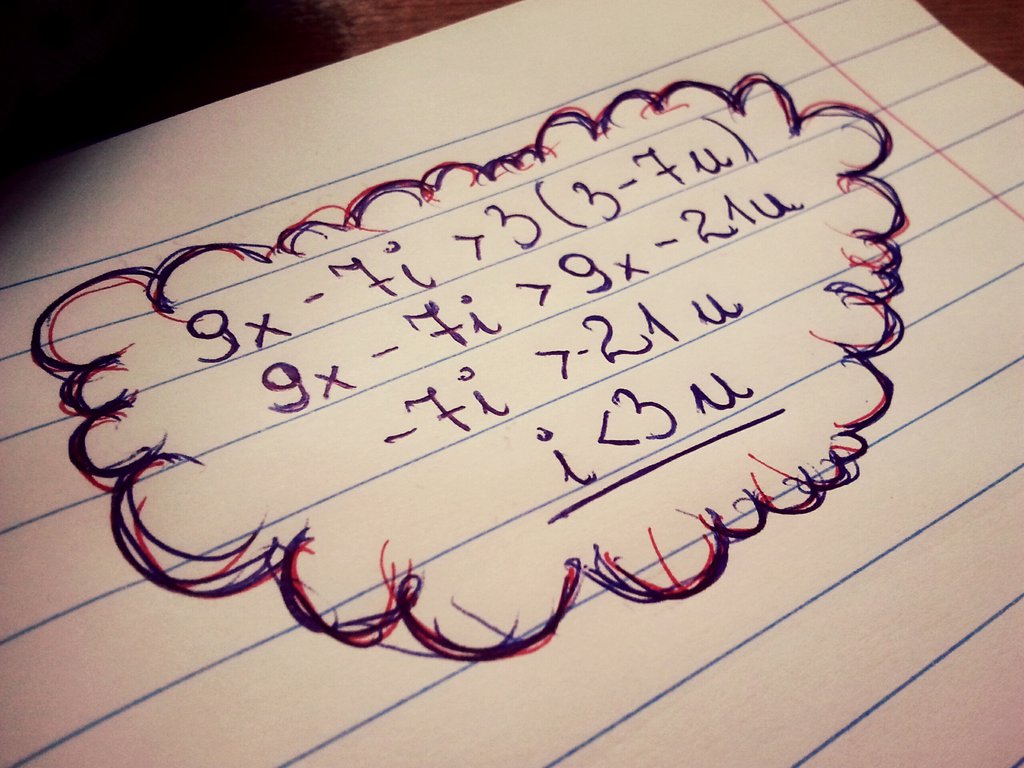 9x - 7i > 3(3 - 7u)
9x - 7i > 9x - 21u
- 7i > - 21u
i < 3u